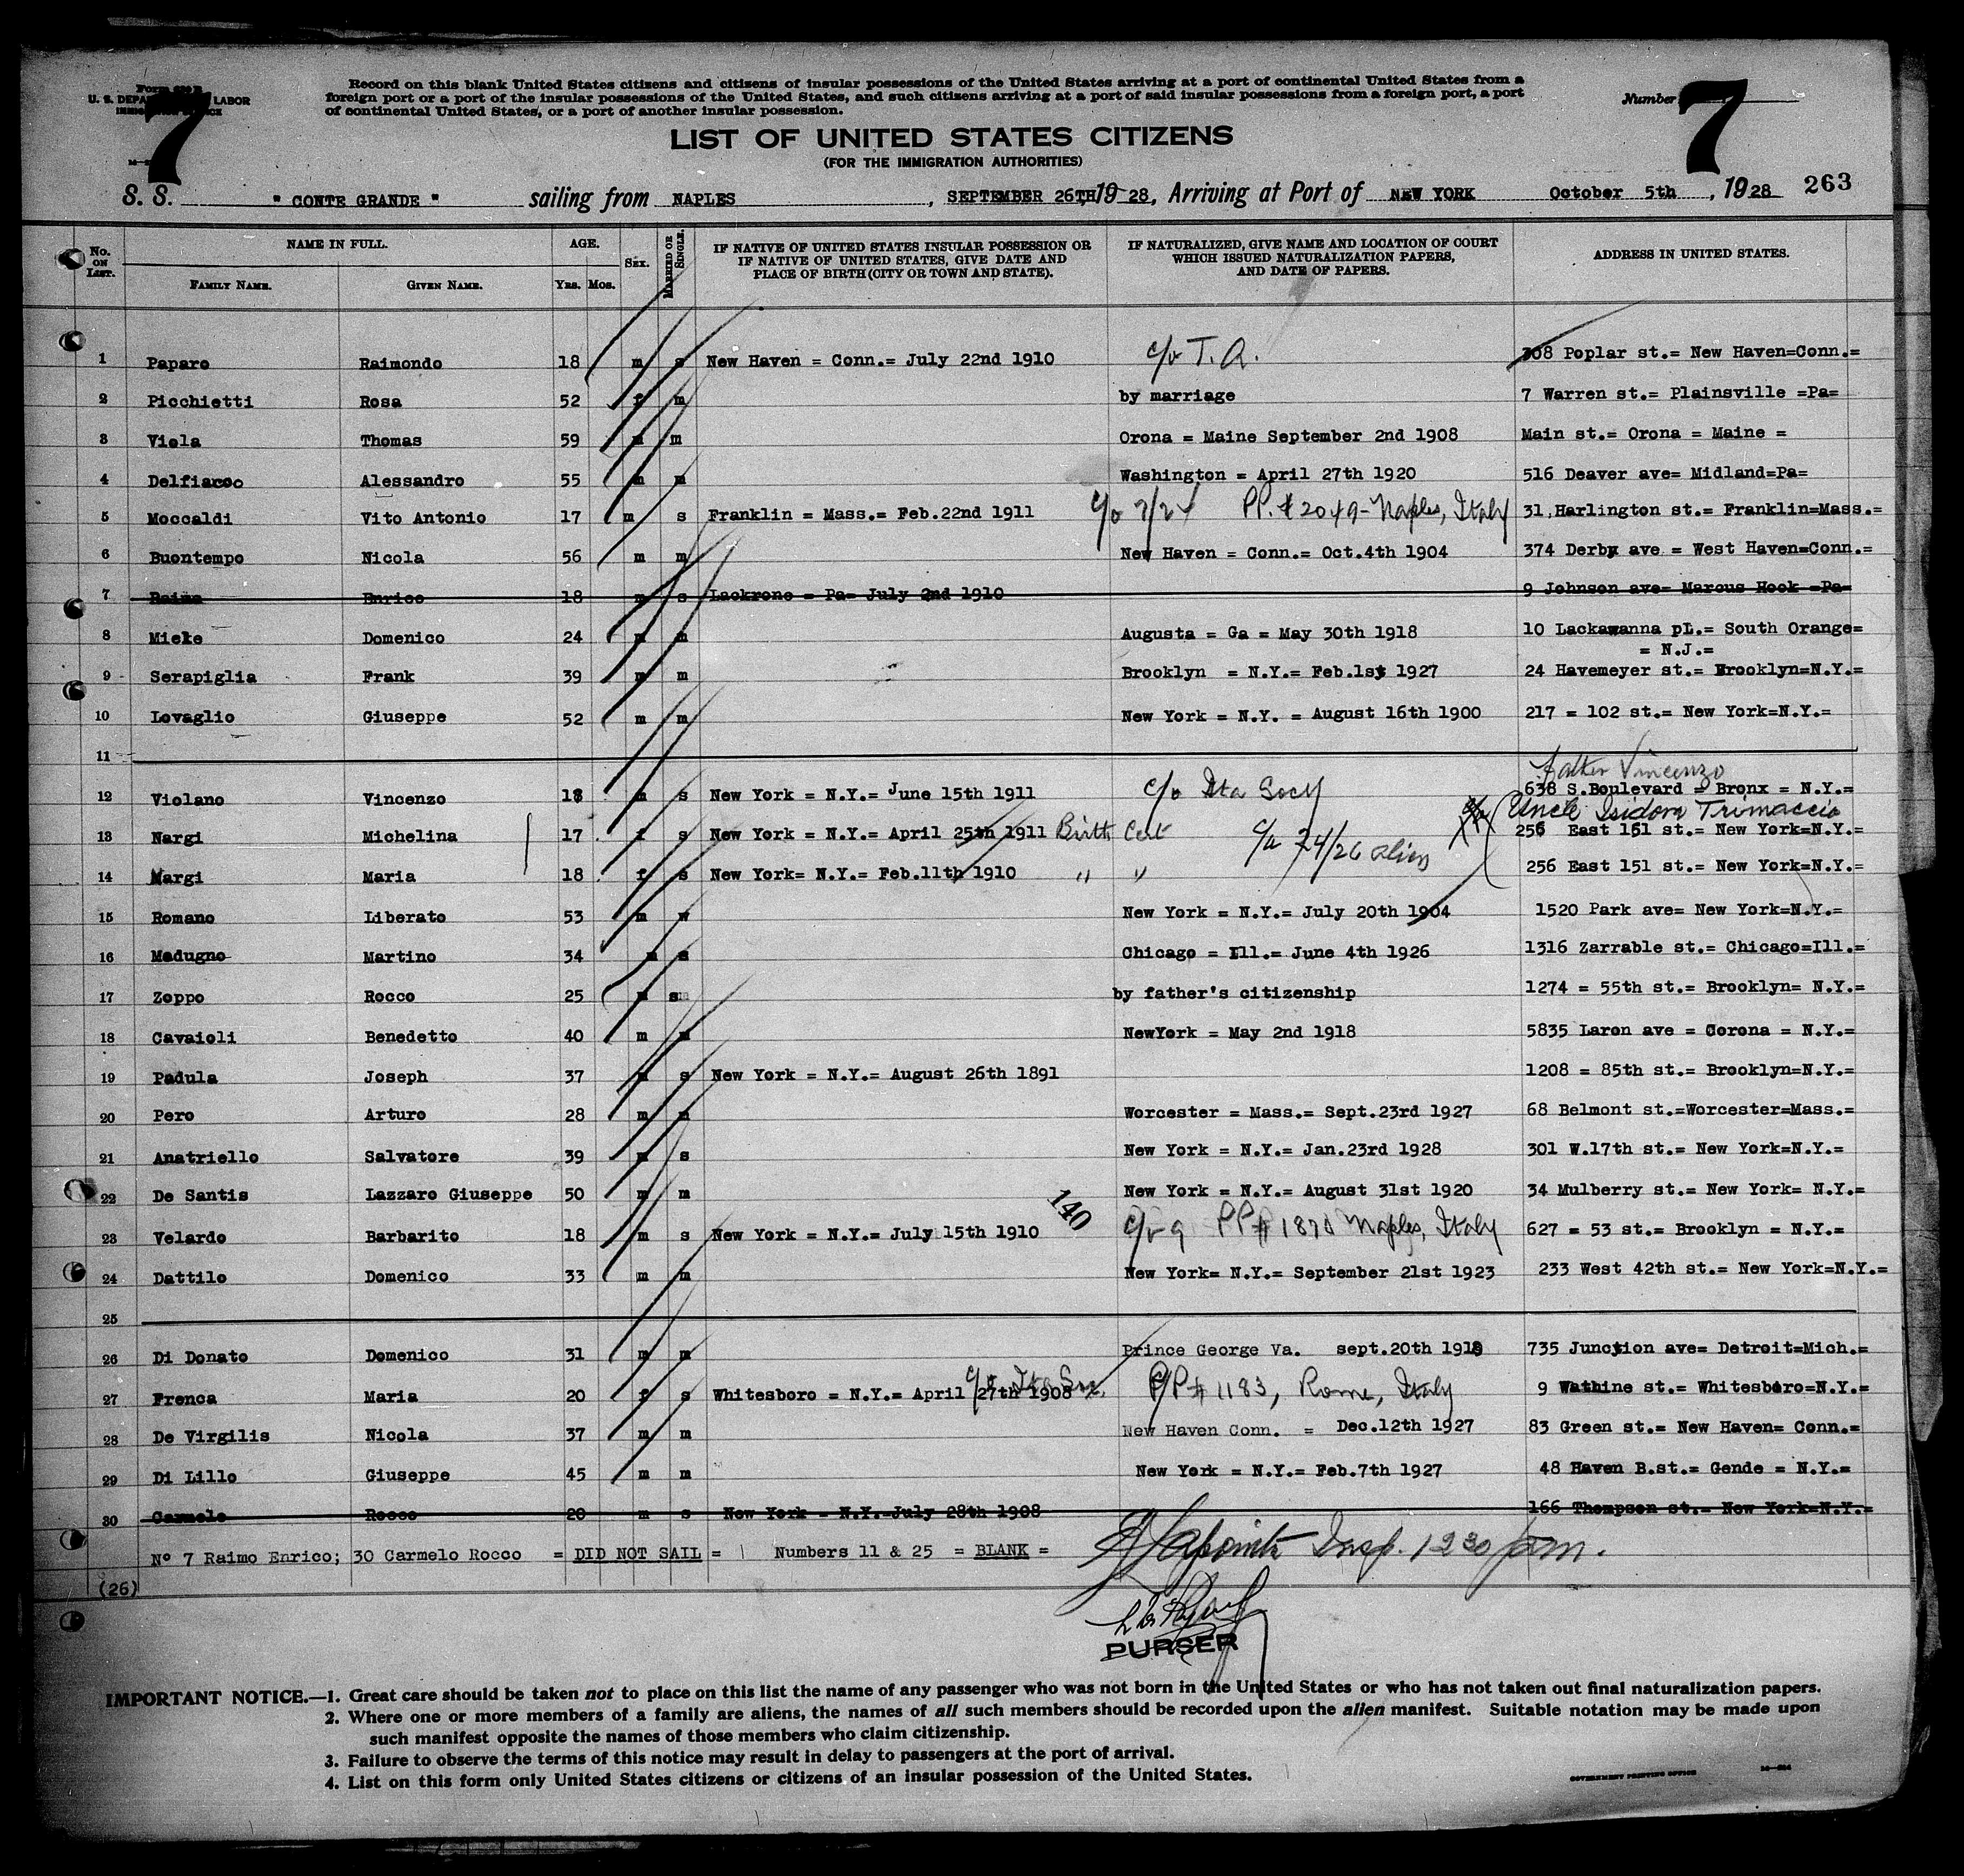 Form 630 B
U. S. DEPARTMENT OF LABOR
IMMIGRATION SERVICE
7
Record on this blank United States citizens and citizens of insular possessions of the United States arriving at a port of continental United States from a
foreign port or a port of the insular possessions of the United States, and such citizens arriving at a port of said insular possessions from a foreign port, a port
of continental United States, or a port of another insular possession.
Number 7
LIST OF UNITED STATES CITIZENS
(FOR THE IMMIGRATION AUTHORITIES)
S. S. " CONTE GRANDE " sailing from NAPLES , SEPTEMBER 26TH 19 28, Arriving at Port of NEW YORK October 5th , 19 28 263
No. ON LIST. NAME IN FULL. FAMILY NAME. GIVEN NAME. AGE. YRS. MOS. SEX. MARRIED OR SINGLE. IF NATIVE OF UNITED STATES INSULAR POSSESSION OR IF NATIVE OF UNITED STATES, GIVE DATE AND PLACE OF BIRTH (CITY OR TOWN AND STATE). IF NATURALIZED, GIVE NAME AND LOCATION OF COURT WHICH ISSUED NATURALIZATION PAPERS, AND DATE OF PAPERS. ADDRESS IN UNITED STATES.
1 Paparo Raimondo 18 m s New Haven = Conn.= July 22nd 1910 c/o T. A. 308 Poplar st.= New Haven=Conn.=
2 Picchietti Rosa 52 f m by marriage 7 Warren st.= Plainsville =Pa=
3 Viola Thomas 59 m m Orona = Maine September 2nd 1908 Main st.= Orona = Maine =
4 Delfiacco Alessandro 55 m m Washington = April 27th 1920 516 Deaver ave= Midland=Pa=
5 Moccaldi Vito Antonio 17 m s Franklin = Mass.= Feb.22nd 1911 PP. # 2049-Naples, Italy 31,Harlington st.= Franklin=Mass.=
6 Buontempo Nicola 56 m m New Haven = Conn.= Oct.4th 1904 374 Derby ave = West Haven=Conn.=
7 Raimo Enrico 18 m s Lackrone = Pa= July 2nd 1910 9 Johnson ave= Marcus Hook =Pa=
8 Miele Domenico 24 m m Augusta = Ga = May 30th 1918 10 Lackawanna pl.= South Orange=
= N.J.=
9 Serapiglia Frank 39 m m Brooklyn = N.Y.= Feb.1st 1927 24 Havemeyer st.= Brooklyn=N.Y.=
10 Lovaglio Giuseppe 52 m m New York = N.Y. = August 16th 1900 217 = 102 st.= New York=N.Y.=
11
father Vincenzo
12 Violano Vincenzo 18 m s New York = N.Y.= June 15th 1911 c/o Ita Socy 638 S.Boulevard = Bronx = N.Y.=
Uncle Isidora Trimaccio
13 Nargi Michelina 17 f s New York = N.Y.= April 25th 1911 Birth Cert 256 East 151 st.= New York=N.Y.=
14 Nargi Maria 18 f s New York= N.Y.= Feb.11th 1910 " " 256 East 151 st.= New York=N.Y.=
15 Romano Liberato 53 m w New York = N.Y.= July 20th 1904 1520 Park ave= New York=N.Y.=
16 Madugno Martino 34 m s Chicago = Ill.= June 4th 1926 1316 Zarrable st.= Chicago=Ill.=
17 Zoppo Rocco 25 m s by father's citizenship 1274 = 55th st.= Brooklyn= N.Y.=
18 Cavaioli Benedetto 40 m m NewYork = May 2nd 1918 5835 Laron ave = Corona = N.Y.=
19 Padula Joseph 37 m s New York = N.Y.= August 26th 1891 1208 = 85th st.= Brooklyn=N.Y.=
20 Pero Arturo 28 m m Worcester = Mass.= Sept.23rd 1927 68 Belmont st.=Worcester=Mass.=
21 Anatriello Salvatore 39 m s New York = N.Y.= Jan.23rd 1928 301 W.17th st.= New York=N.Y.=
22 De Santis Lazzaro Giuseppe 50 m m New York = N.Y.= August 31st 1920 34 Mulberry st.= New York= N.Y.=
140
23 Velardo Barbarito 18 m s New York = N.Y.= July 15th 1910 PP# 1870 Naples, Italy 627 = 53 st.= Brooklyn = N.Y.=
24 Dattilo Domenico 33 m m New York= N.Y.= September 21st 1923 233 West 42th st.= New York=N.Y.=
25
26 Di Donato Domenico 31 m m Prince George Va. sept.20th 1919 735 Junction ave= Detroit=Mich.=
27 Frenca Maria 20 f s Whitesboro = N.Y.= April 27th 1908 c/o Ita Soc. PP# 1183, Rome, Italy 9 Wathine st.= Whitesboro=N.Y.=
28 De Virgilis Nicola 37 m m New Haven Conn. = Dec.12th 1927 83 Green st.= New Haven= Conn.=
29 Di Lillo Giuseppe 45 m m New York = N.Y.= Feb.7th 1927 48 Haven B.st.= Gende = N.Y.=
30 Carmelo Rocco 20 m s New York = N.Y.=July 28th 1908 166 Thompson st.= New York=N.Y.=
Nº 7 Raimo Enrico; 30 Carmelo Rocco = DID NOT SAIL = Numbers 11 & 25 = BLANK = Insp. 1230 pm.
(26)
PURSER
IMPORTANT NOTICE.—1. Great care should be taken not to place on this list the name of any passenger who was not born in the United States or who has not taken out final naturalization papers.
2. Where one or more members of a family are aliens, the names of all such members should be recorded upon the alien manifest. Suitable notation may be made upon
such manifest opposite the names of those members who claim citizenship.
3. Failure to observe the terms of this notice may result in delay to passengers at the port of arrival.
4. List on this form only United States citizens or citizens of an insular possession of the United States.
GOVERNMENT PRINTING OFFICE